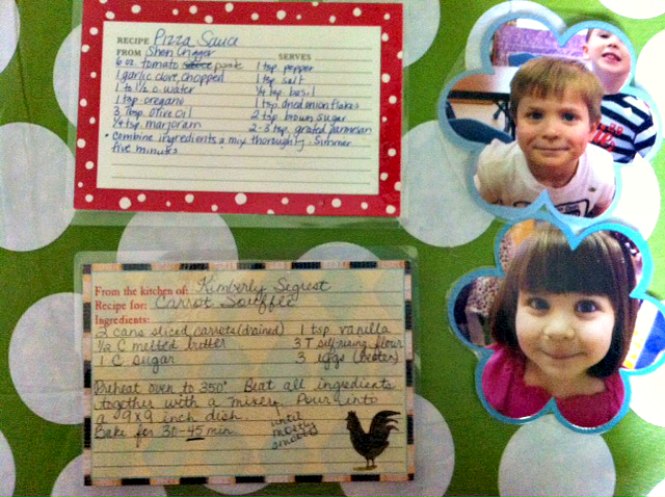 RECIPE Pizza Sauce
FROM Sheri Crigger SERVES
6 oz. tomato paste 1 tsp. pepper
1 garlic clove, chopped 1 tsp. salt
1 to 1 1/2 c. water 1/4 tsp. basil
1 tsp. oregano 1 tsp. dried onion flakes
3 Tbsp. Olive Oil 2 tsp. brown sugar
1/4 tsp. marjoram 2-3 tsp. grated parmesan
• Combine ingredients & mix thoroughly. Simmer
five minutes
From the kitchen of: Kimberly Segrest
Recipe for: Carrot Souffle
Ingredients:
2 cans sliced carrots (drained) 1 tsp vanilla
1/2 C melted butter 3 T self-rising flour
1 C sugar 3 eggs (beaten)
Preheat oven to 350°. Beat all ingredients
together with a mixer. Pour into
a 9x9 inch dish.
Bake for 30-45 min until